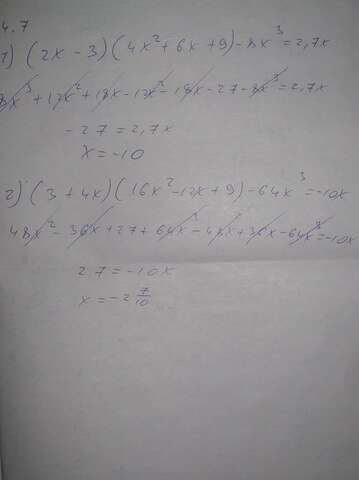 4.7
1) (2x - 3)(4x² + 6x + 9) - 8x³ = 2,7x
8x³ + 12x² + 18x - 12x² - 18x - 27 - 8x³ = 2,7x
-27 = 2,7x
x = -10
2) (3 + 4x)(16x² - 12x + 9) - 64x³ = -10x
48x² - 36x + 27 + 64x³ - 48x² + 36x - 64x³ = -10x
27 = -10x
x = -2 7/10